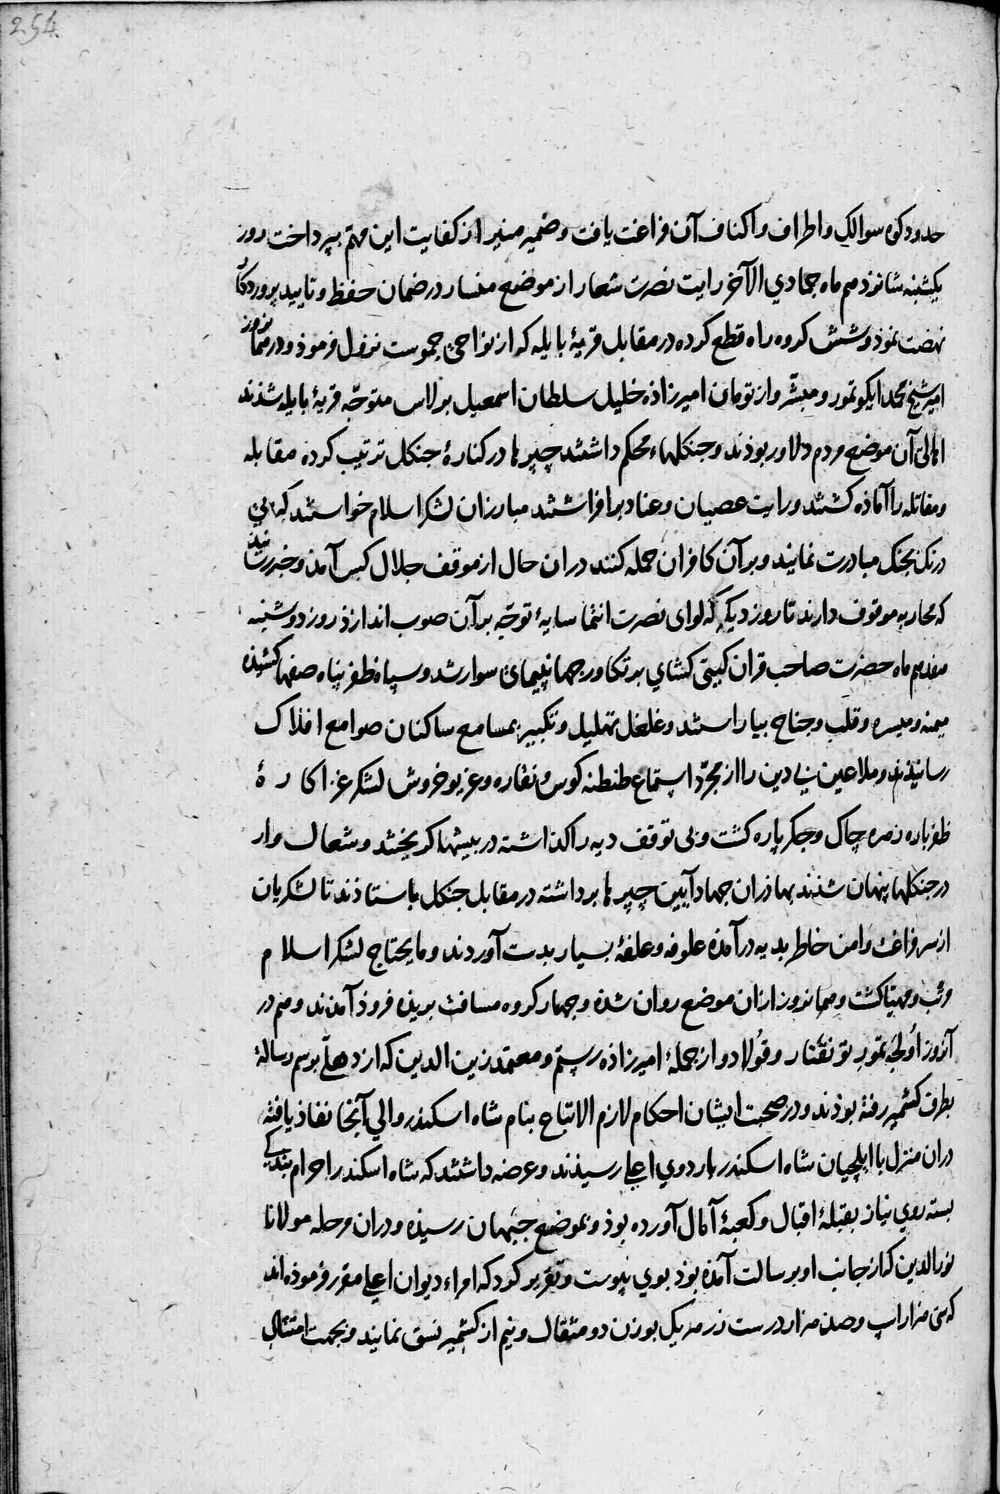 254
حدود کوه سوالک و اطراف و اکناف آن فراغت یافت و ضمیر منیر از کفایت این مهم بپرداخت روز
یکشنبه شانزدهم ماه جمادي الآخر رایت نصرت شعار از موضع منسار در ضمان حفظ و تایید پروردکار
نهضت نموذ و شش کروه راه قطع کرده در مقابل قریهٔ بایله که از نواحی جموست نزول فرموذ و در همان روز
امیر شیخ محمد ایکو تمور و مبشر و از تومان امیرزاذه خلیل سلطان اسمعیل برلاس متوجه قریهٔ بایله شذند
اهالی آن موضع مردم دلاور بوذند و جنکلهاء محکم داشتند چپرها در کنارهٔ جنکل ترتیب کرده مقابله
و مقاتله را آماذه کشتند و رایت عصیان و عناد برافراشتند مبارزان لشکر اسلام خواستند که بی
درنک بجنک مبادرت نمایند و بر آن کافران حمله کنند در ان حال از موقف جلال کس آمذ و خبر رسانید
که محاربه موقوف دارند تا روز دیکر که لوای نصرت انتما سایهٔ توجه بر آن صوب اندازذ روز دوشنبه
هفدهم ماه حضرت صاحب قران کیتی کشاي بر تکاور جهان پیمای سوار شد و سپاه ظفر پناه صفها کشیذه
میمنه و میسره و قلب و جناح بیاراستند و غلغل تهلیل و تکبیر بمسامع ساکنان صوامع افلاک
رسانیذند و ملاعین بي دین را از مجرد استماع طنطنه کوس و نقاره و غریو و خروش لشکر غزا کا ر هٔ
ظفر باره زهره چاک و جکر پاره کشت و بی توقف دیه را کذاشته در بیشها کریختند و شغال وار
در جنکلها پنهان شذند بهاذران جهاد آیین چپرها برداشته در مقابل جنکل باستاذند تا لشکریان
از سر فراغت و امن خاطر بدیه در آمذه علوفه و علفهٔ بسیار بدست آوردند و مایحتاج لشکر اسلام
مرتب و مهیا کشت و همان روز ازان موضع روان شذه و چهار کروه مسافت بریذه فروذ آمذند و هم در
آن روز اولجه تمور تونقتار و فولاد و از جملهٔ امیرزاذه رستم و معتمد زین الدین که از دهلی برسم رسالة
بطرف کشمیر رفته بوذند و در صحبت ایشان احکام لازم الاتباع بنام شاه اسکندر والي آنجا نفاذ یافته
دران منزل با ایلچیان شاه اسکندر باردوي اعلی رسیذند و عرضه داشتند که شاه اسکندر احرام بندکی
بسته روي نیاز بقبلهٔ اقبال و کعبهٔ آمال آورده بوذ و بموضع جبهان رسیذه و دران مرحله مولانا
نور الدین که از جانب او برسالت آمذه بوذ بوي پیوست و تقریر کرد که امراء دیوان اعلی مقرر فرموذه اند
که سی هزار اسپ و صد هزار درست زر هر یک بوزن دو مثقال و نیم از کشمیر نسق نمایند و بجهت امتثال